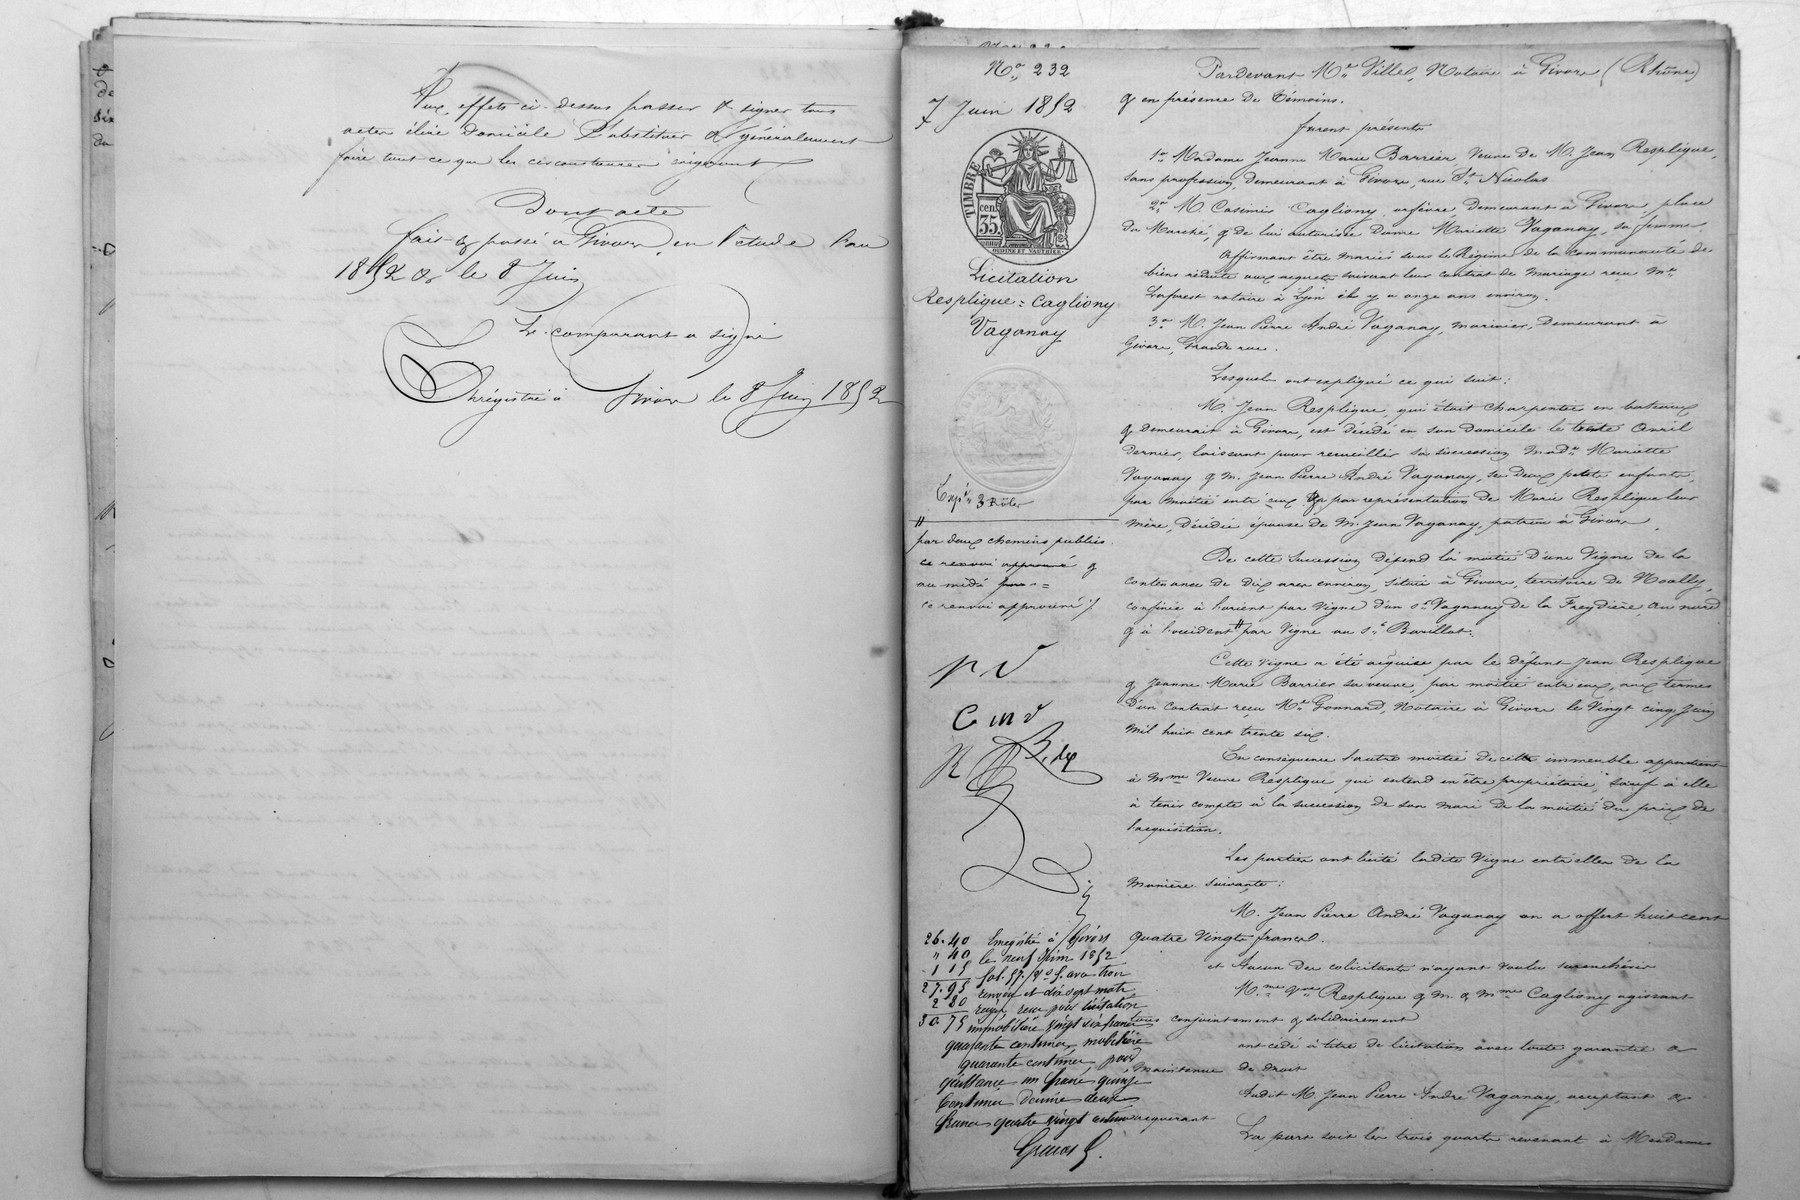 Aux effets ci-dessus passer & signer tous
actes élire Domicile, Substituer & généralement
faire tout ce que les circonstances exigeront
Dont acte
fait & passé à Givors, en l'étude l'an
1852 & le 8 Juin
Le comparant a signé
Enrégistré à Givors le 8 Juin 1852
N° 232
7 Juin 1852
TIMBRE
35 cent
Licitation
Resplique = Cagliony
Vaganay
Expé 3 Rôles
par deux chemins publics.
ce renvoi approuvé &
au midi
ce renvoi approuvé ./.
p V
C m V
R
B, 
26.40 Enregistré à Givors
" 40 le neuf Juin 1852
1 15 fol. 57.
27.95 renvoi et dix sept mots
2 80 rayés reçu pour licitation
30 75 immobilière vingt six francs
quarante centimes, mobilière
quarante centimes, pour
quittance un franc quinze
Centimes décime deux
francs quatre vingt centimes
Pardevant Me Ville, Notaire à Givors (Rhône)
& en présence de Témoins.
furent présents
1° Madame Jeanne Marie Barrier, Veuve de M. Jean Resplique,
Sans profession, demeurant à Givors, rue St Nicolas
2° M. Casimir Cagliony orfèvre, Demeurant à Givors, place
Du Marché, & de lui autorisée Dame Mariette Vaganay, sa femme.
Affirmant être mariés sous le Régime de la communauté de
biens réduite aux acquets suivant leur contrat de mariage reçu Me
Laforest notaire à Lyon il y a onze ans environ.
3° M. Jean Pierre André Vaganay, marinier, Demeurant à
Givors, Grande rue.
Lesquels ont expliqué ce qui suit:
M. Jean Resplique, qui était Charpentier en bateaux
& demeurait à Givors, est décédé en son Domicile le trente Avril
dernier, laissant pour recueillir sa succession Made Mariette
Vaganay & M. Jean Pierre André Vaganay, ses deux petits enfants,
par moitié entr'eux & par représentation de Marie Resplique leur
Mère, Décédée épouse de M. Jean Vaganay, patron à Givors.
De cette Succession dépend la moitié d'une Vigne de la
contenance de Dix ares environ, située à Givors, territoire de Noailly,
confinée à l'orient par Vigne d'un sr Vaganay de la Freydière, au nord
& à l'occident par Vigne au sr Barillot.
Cette Vigne a été acquise par le défunt Jean Resplique
& Jeanne Marie Barrier sa veuve, par moitié entr'eux, aux termes
D'un contrat reçu Me Gonnard, Notaire à Givors le Vingt cinq Juin
Mil huit cent trente six.
En conséquence l'autre moitié de cette immeuble appartient
à Mme Veuve Resplique qui entend en être propriétaire, sauf à elle
à tenir compte à la succession de son mari de la moitié du prix de
l'acquisition.
Les parties ont licité ladite Vigne entr'elles de la
Manière suivante:
M. Jean Pierre André Vaganay en a offert huit cent
quatre Vingts francs.
et Aucun des colicitants n'ayant voulu surenchérir
Mme Vve Resplique & M. & Mme Cagliony agissant
tous conjointement & solidairement
ont cédé à titre de licitation avec toute garantie &
Maintenue de droit
Audit M. Jean Pierre André Vaganay, acceptant &
acquérant
La part soit les trois quarts revenant à Mesdames